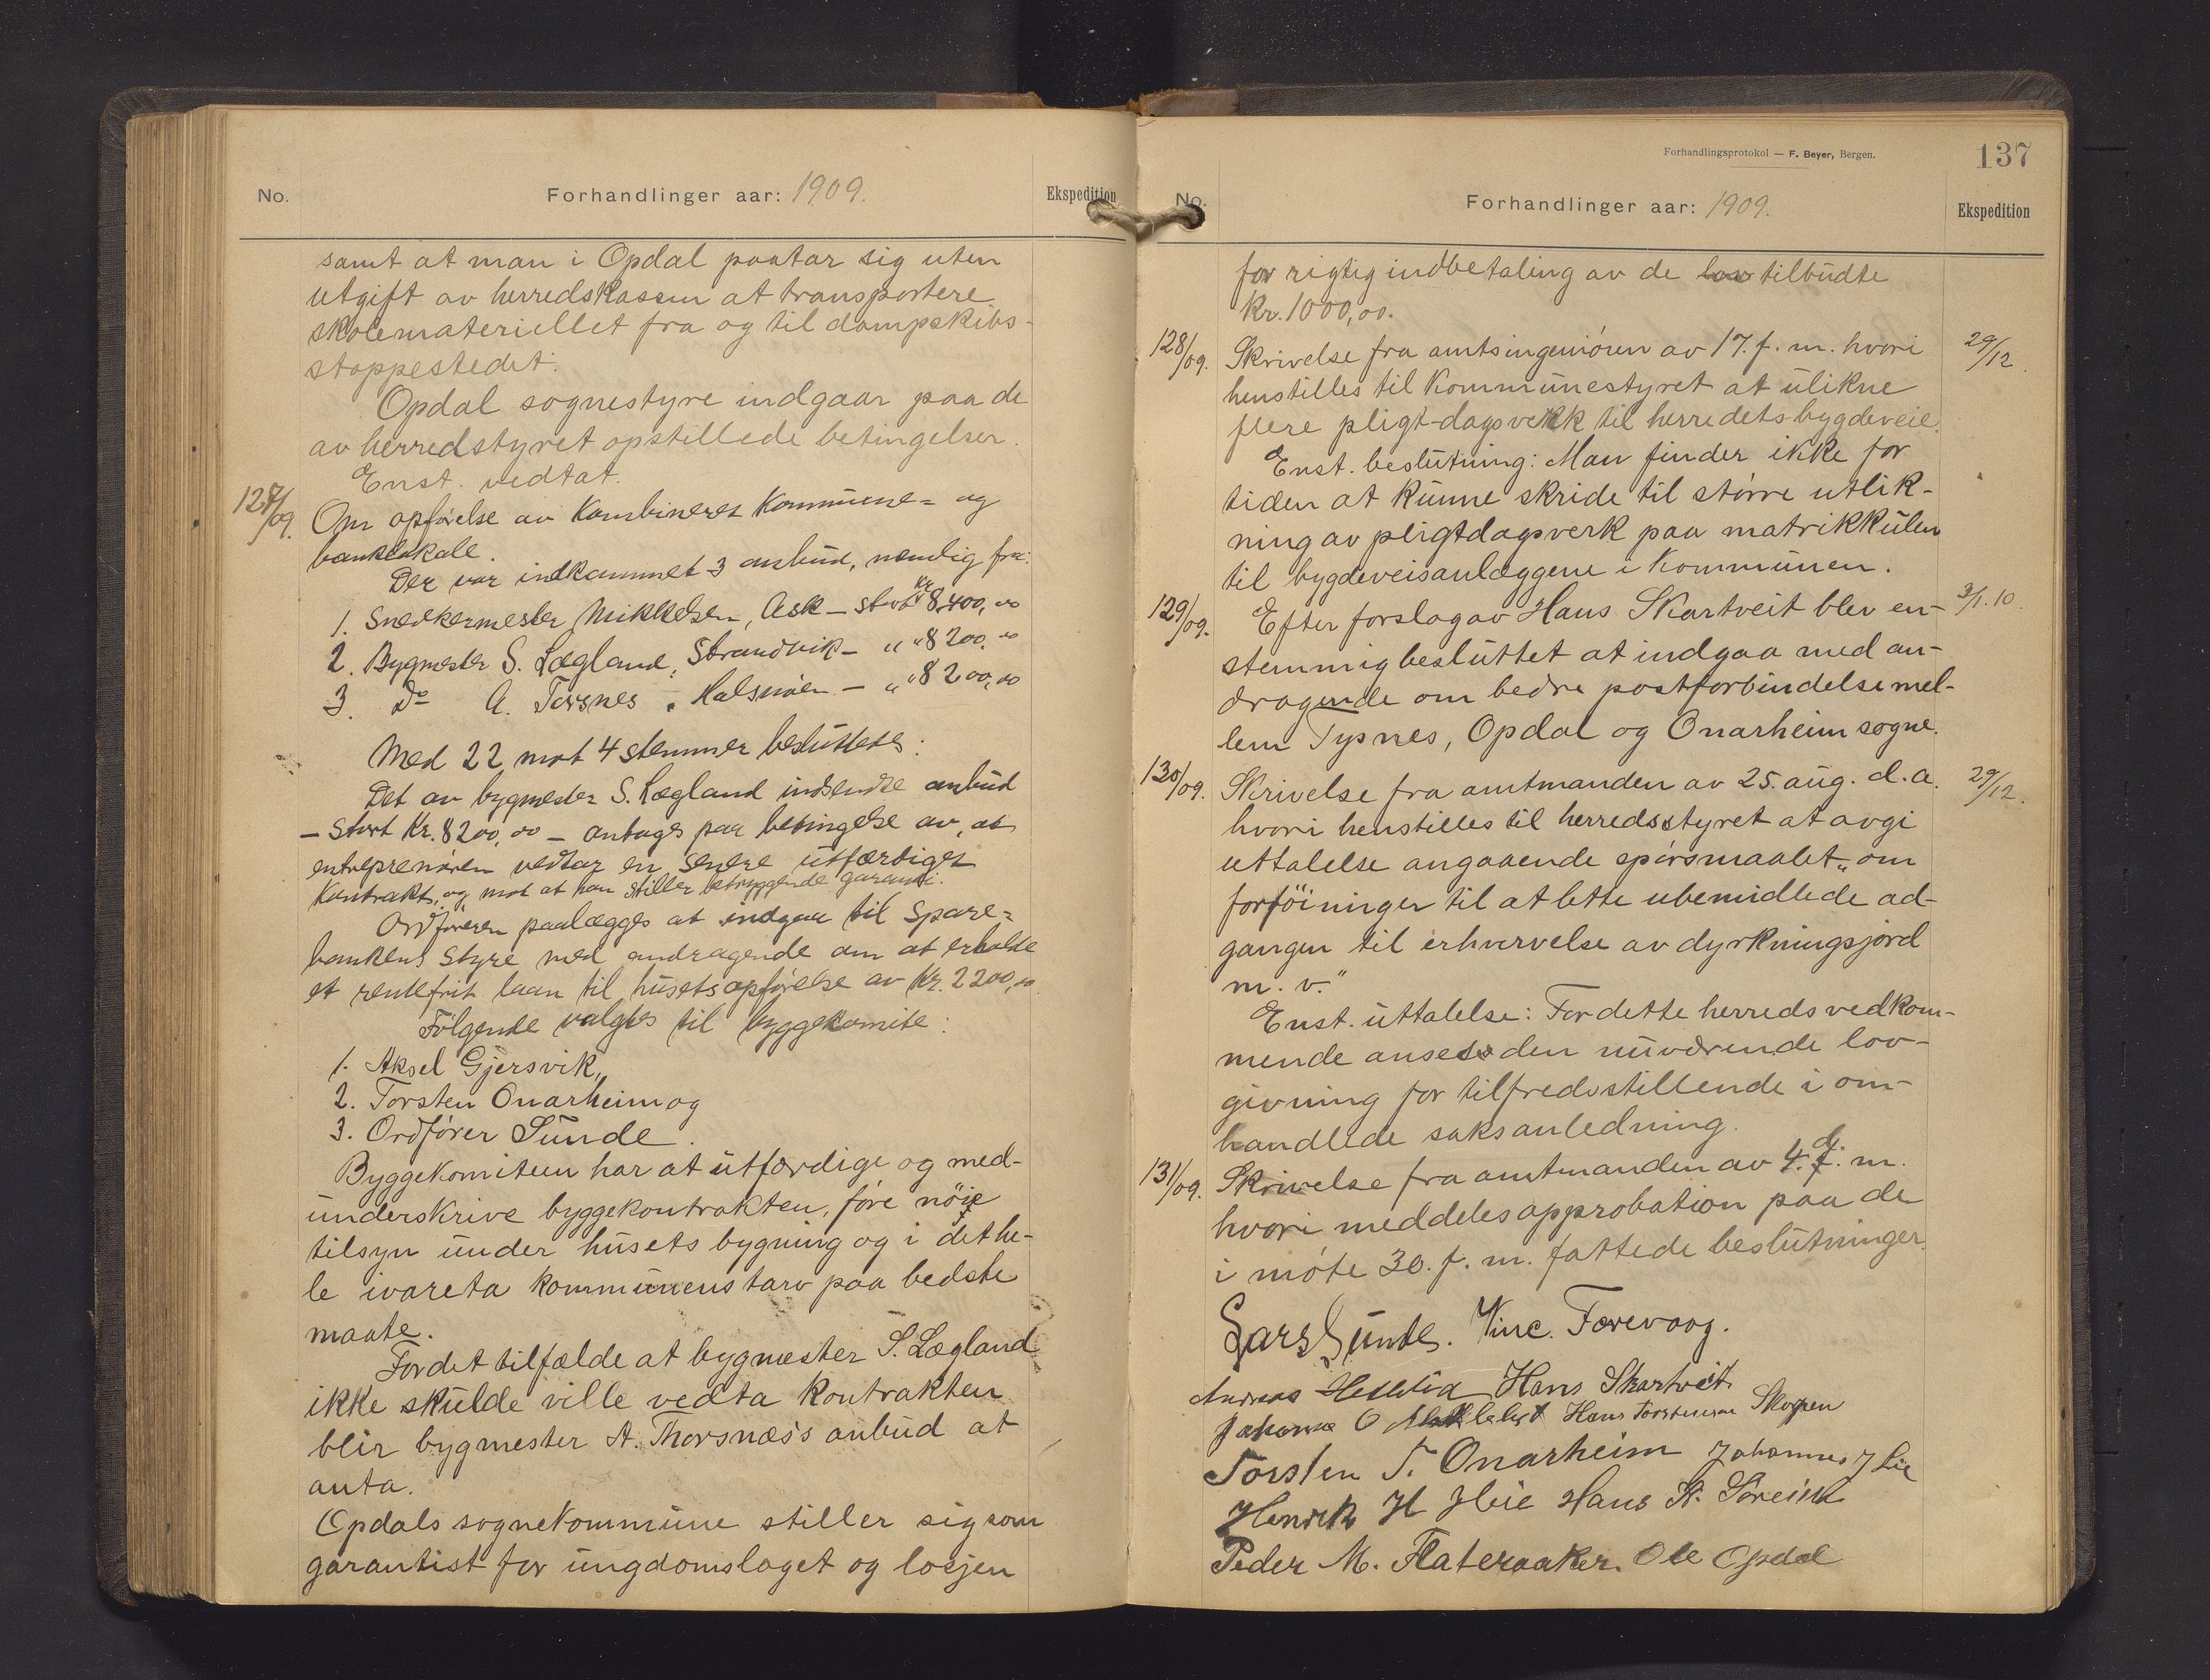 No.
Forhandlinger aar: 1909.
Ekspedition
samt at man i Opdal paatar sig uten
utgift av herredskassen at transportere
skolemateriellet fra og til dampskibs-
stoppestedet.
Opdal sognestyre indgaar paa de
av herredstyret opstillede betingelser.
Enst. vedtat.
127/09.
Om opførelse av kombineret kommune- og
banklokale.
Der var indkommet 3 anbud, nemlig fra:
1. Snedkermester Mikkelsen, Ask – stort kr. 8,400,00
2. Bygmester S. Lægland, Strandvik – " " 8200,00
3. Do A. Torsnes, Halsnøen – " " 8200,00
Med 22 mot 4 stemmer besluttedes:
Det av bygmester S. Lægland indsendte anbud
– stort kr. 8200,00 – antages paa betingelse av, at
entreprenøren vedtar en senere utfærdiget
kontrakt, og mot at han stiller betryggende garanti.
Ordføreren paalægges at indgaa til Spare-
bankens styre med andragende om at erholde
et rentefrit laan til husets opførelse av kr. 2200,00.
Følgende valgtes til byggekomite:
1. Aksel Gjersvik,
2. Torsten Onarheim og
3. Ordfører Sunde.
Byggekomiteen har at utfærdige og med-
underskrive byggekontrakten, føre nøie
tilsyn under husets bygning og i det he-
le ivareta kommunens tarv paa bedste
maate.
For det tilfælde at bygmester S. Lægland
ikke skulde ville vedta kontrakten
blir bygmester A. Thorsnæs's anbud at
anta.
Opdals sognekommune stiller sig som
garantist for ungdomslaget og losjen
Forhandlingsprotokol — F. Beyer, Bergen.
137
No.
Forhandlinger aar: 1909.
Ekspedition
for rigtig indbetaling av de lov tilbudte
kr. 1000,00.
128/09.
Skrivelse fra amtsingeniøren av 17. f. m. hvori
29/12.
henstilles til kommunestyret at ulikne
flere pligt-dagsverk til herredets bygdeveie.
Enst. beslutning: Man finder ikke for
tiden at kunne skride til større utlik-
ning av pligtdagsverk paa matrikkulen
til bygdeveisanlæggene i kommunen.
129/09.
Efter forslag av Hans Skartveit blev en-
3/1.10.
stemmig besluttet at indgaa med an-
dragende om bedre postforbindelse mel-
lem Tysnes, Opdal og Onarheim sogne.
130/09.
Skrivelse fra amtmanden av 25. aug. d. a.
29/12.
hvori henstilles til herredsstyret at avgi
uttalelse angaaende spørsmaalet „om
forföininger til at lette ubemidlede ad-
gangen til erhvervelse av dyrkningsjord
m. v."
Enst. uttalelse: For dette herreds vedkom-
mende ansees den nuværende lov-
givning for tilfredsstillende i om-
handlede saksanledning.
131/09.
Skrivelse fra amtmanden av 4. d. f. m.
hvori meddeles approbation paa de
i møte 30. f. m. fattede beslutninger.
Lars Sunde. Vinc. Færevaag.
Andreas Hans Skartveit.
Johannes O Hans Torstensen Skogen
Torsten T. Onarheim Johannes J Lie
Henrik H Hans
Peder M. Flateraaker. Ole Opdal